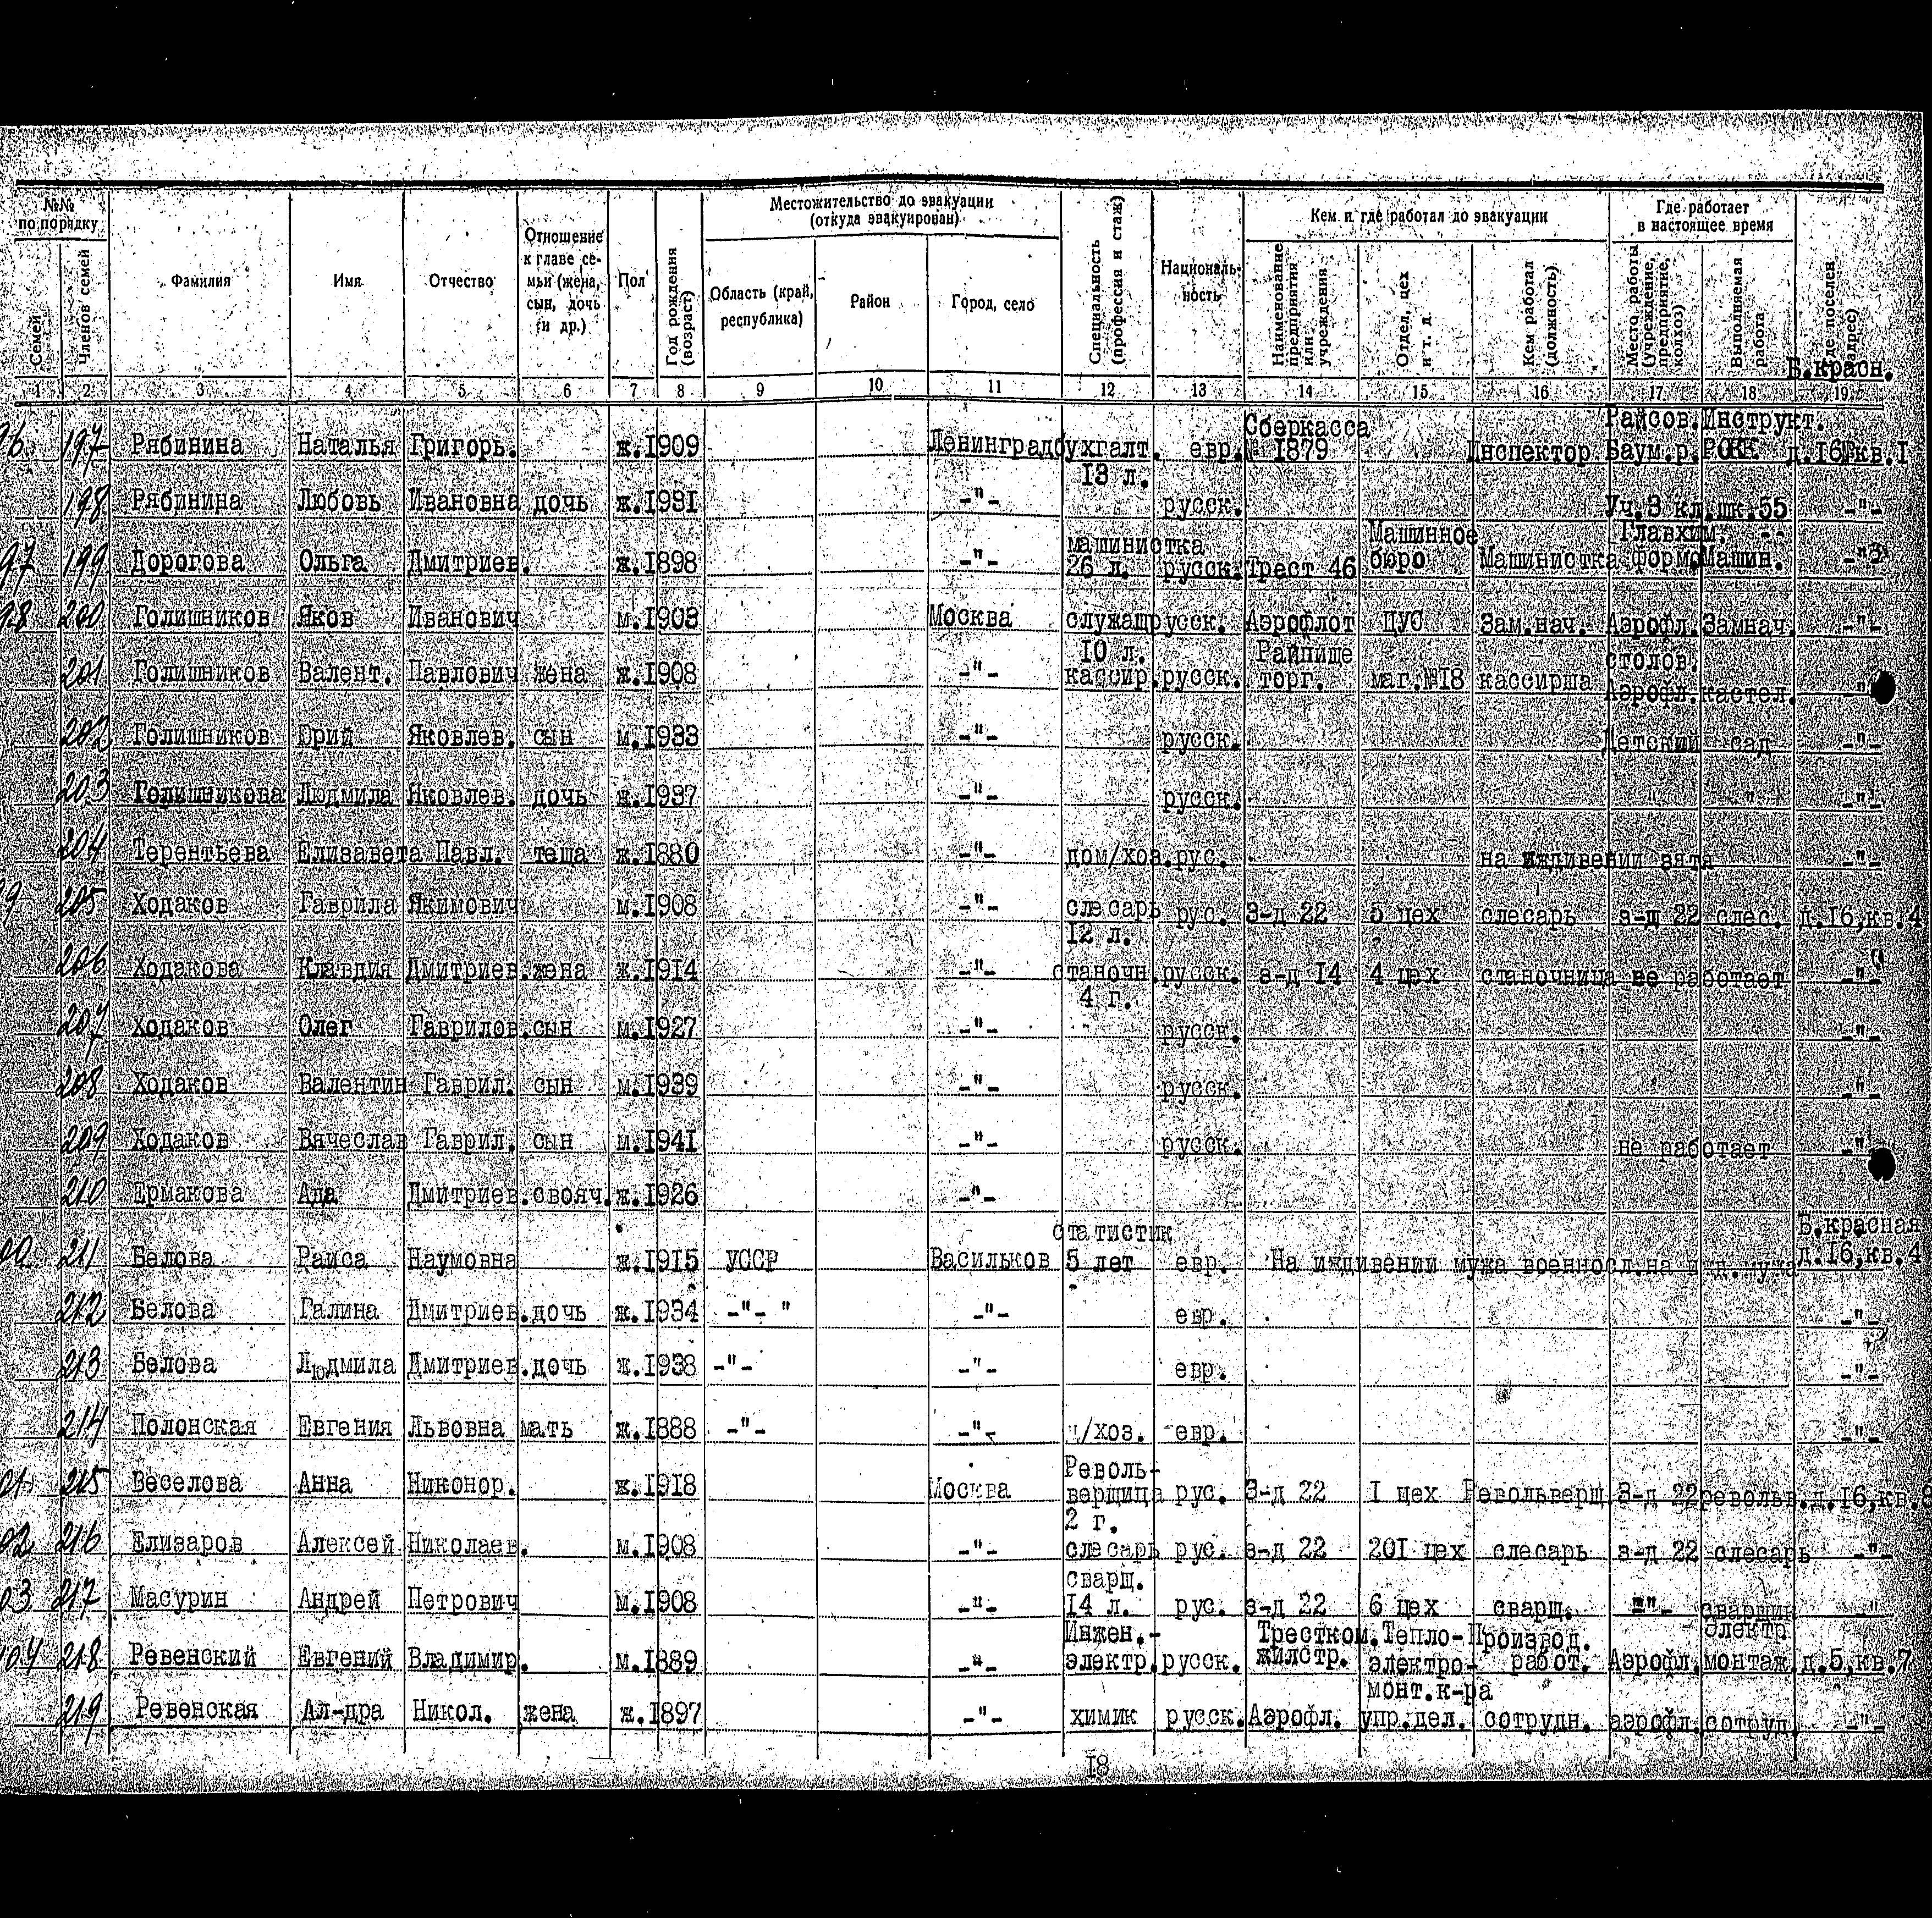 №№ по порядку
Местожительство до эвакуации (откуда эвакуирован)
Кем и где работал до эвакуации
Где работает в настоящее время
Семей
Членов семей
Фамилия
Имя
Отчество
Отношение к главе семьи (жена, сын, дочь и др.)
Пол
Год рождения (возраст)
Область (край, республика)
Район
Город, село
Специальность (профессия и стаж)
Националь-ность
Наименование предприятия или учреждения
Отдел, цех и т. д.
Кем работал (должность)
Место работы (учреждение, предприятие, колхоз)
Выполняемая работа
Где поселен (адрес)
Б.красн.
1 2 3 4 5 6 7 8 9 10 11 12 13 14 15 16 17 18 19
197 Рябинина Наталья Григорь. ж. 1909 Ленинград бухгалт. 13 л. евр. Сберкасса № 1879 Инспектор Райсов. Баум.р. Инструкт. РОКК д.16 кв.1
198 Рябинина Любовь Ивановна дочь ж. 1931 -"- русск. Уч.3 кл.шк.55 -"-
97 199 Дорогова Ольга Дмитриев. ж. 1898 -"- машинистка 26 л. русск. Трест 46 Машинное бюро Машинистка Главхим. форм. Машин. -"-
98 200 Голишников Яков Иванович м. 1903 Москва служащ 10 л. русск. Аэрофлот ЦУС Зам.нач. Аэрофл. Замнач. -"-
201 Голишников Валент. Павлович жена ж. 1908 -"- кассир. русск. Райпище торг. маг.№18 кассирша столов. Аэрофл. кастел. -"-
202 Голишников Юрий Яковлев. сын м. 1933 -"- русск. Детский сад -"-
203 Голишникова Людмила Яковлев. дочь ж. 1937 -"- русск. " " -"-
204 Терентьева Елизавета Павл. теща ж. 1880 -"- дом/хоз. рус. на иждивении зятя -"-
205 Ходаков Гаврила Якимович м. 1908 -"- слесарь 12 л. рус. З-д 22 5 цех слесарь з-д 22 слес. д.16,кв.4
206 Ходакова Клавдия Дмитриев. жена ж. 1914 -"- станочн. 4 г. русск. з-д 14 4 цех станочница не работает -"-
207 Ходаков Олег Гаврилов. сын м. 1927 -"- русск. -"-
208 Ходаков Валентин Гаврил. сын м. 1939 -"- русск. -"-
209 Ходаков Вячеслав Гаврил. сын м. 1941 -"- русск. не работает -"-
210 Ермакова Ада Дмитриев. свояч. ж. 1926 -"-
211 Белова Раиса Наумовна ж. 1915 УССР Васильков статистик 5 лет евр. На иждивении мужа военносл. на Б.красная д.16,кв.4
212 Белова Галина Дмитриев. дочь ж. 1934 -"- " -"- евр. -"-
213 Белова Людмила Дмитриев. дочь ж. 1938 -"- -"- евр. -"-
214 Полонская Евгения Львовна мать ж. 1888 -"- -"- д/хоз. евр. -"-
215 Веселова Анна Никонор. ж. 1918 Москва Револь-верщица 2 г. рус. З-д 22 1 цех Револьверщ. З-д 22 револьв. д.16,кв.
02 216 Елизаров Алексей Николаев. м. 1908 -"- слесарь рус. з-д 22 201 цех слесарь з-д 22 слесарь -"-
03 217 Масурин Андрей Петрович м. 1908 -"- сварщ. 14 л. рус. з-д 22 6 цех сварщ. -"- сварщик -"-
04 218 Ревенский Евгений Владимир. м. 1889 -"- Инжен.-электр. русск. Трестком. жилстр. Тепло-электро-монт.к-ра Производ. работ. Аэрофл. электр монтаж. д.5,кв.7
219 Ревенская Ал-дра Никол. жена ж. 1897 -"- химик русск. Аэрофл. упр.дел. сотрудн. аэрофл. сотруд. -"-
18